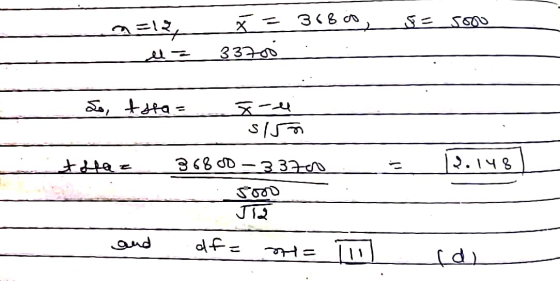 n=12, x̄ = 36800, s = 5000
μ = 33700
So, t sta = x̄ - μ
s/√n
t sta = 36800 - 33700 = 2.148
5000
√12
and df = n-1 = 11 (d)